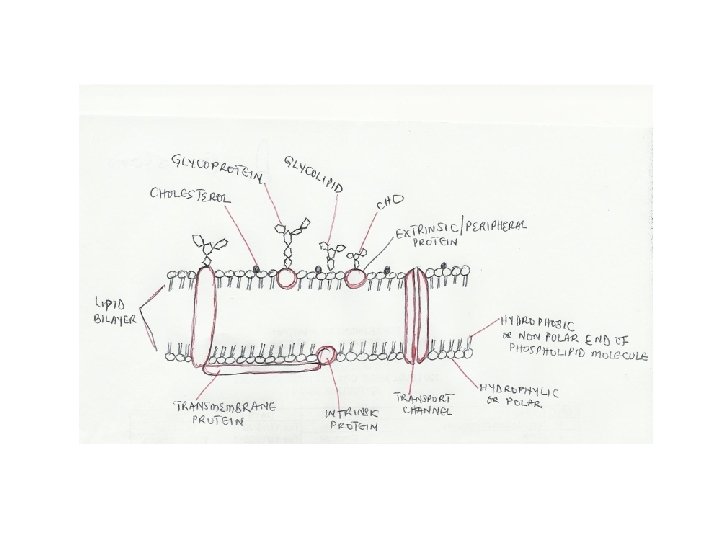 GLYCOPROTEIN
GLYCOLIPID
CHOLESTEROL
CHO
EXTRINSIC/PERIPHERAL
PROTEIN
LIPID
BILAYER
HYDROPHOBIC
OR NON POLAR END OF
PHOSPHOLIPID MOLECULE
HYDROPHYLIC
OR POLAR
TRANSMEMBRANE
PROTEIN
INTRINSIC
PROTEIN
TRANSPORT
CHANNEL